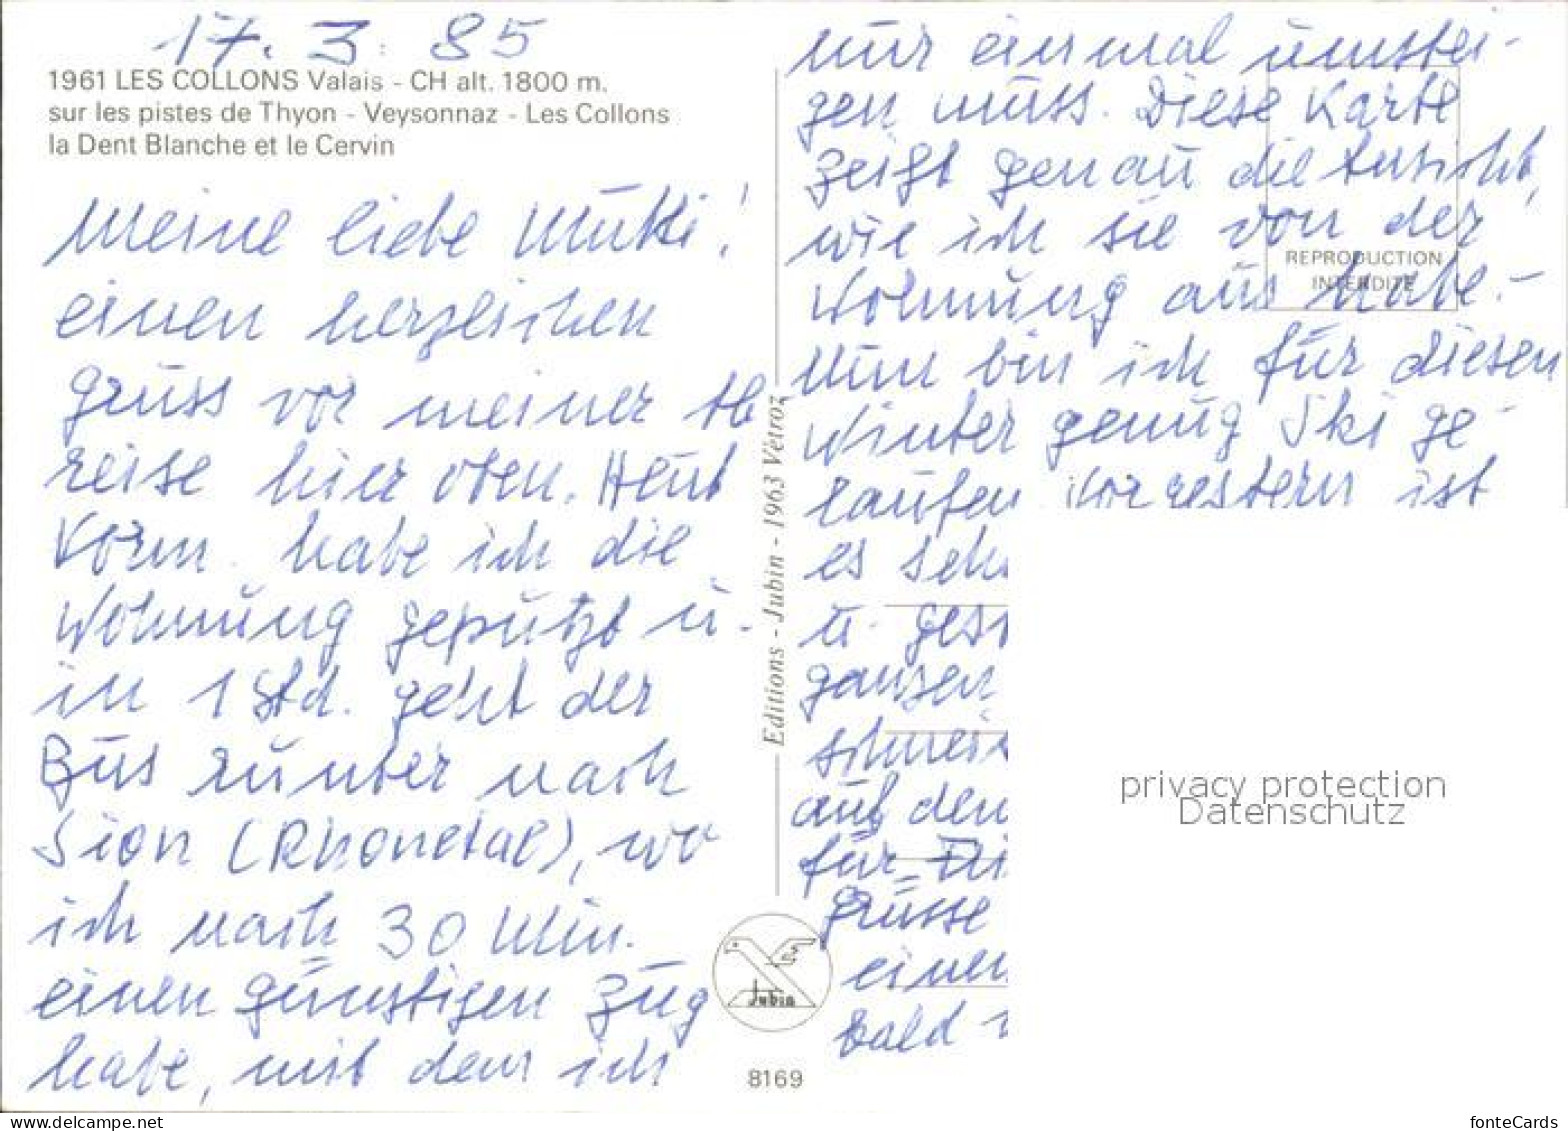 17. 3. 85
1961 LES COLLONS Valais - CH alt. 1800 m.
sur les pistes de Thyon - Veysonnaz - Les Collons
la Dent Blanche et le Cervin
Meine liebe Mutti!
einen herzlichen
Gruss vor meiner Ab
reise hier oben. Heut
Vorm. habe ich die
Wohnung geputzt u.
in 1 Std. geht der
Bus runter nach
Sion (Rhonetal), wo
ich nach 30 Min.
einen günstigen Zug
habe, mit dem ich
Editions - Jubin - 1963 Vétroz
Jubin
8169
nur einmal umstei-
gen muss. Diese Karte
zeigt genau die Ansicht,
wie ich sie von der
Wohnung aus habe.-
REPRODUCTION
INTERDITE
Nun bin ich für diesen
Winter genug Ski ge-
laufen Vorgestern ist
es seh
u. ges
ganzen
schnei
auf den
für Di
Grüsse
einen
bald
privacy protection
Datenschutz
www.delcampe.net
fonteCards